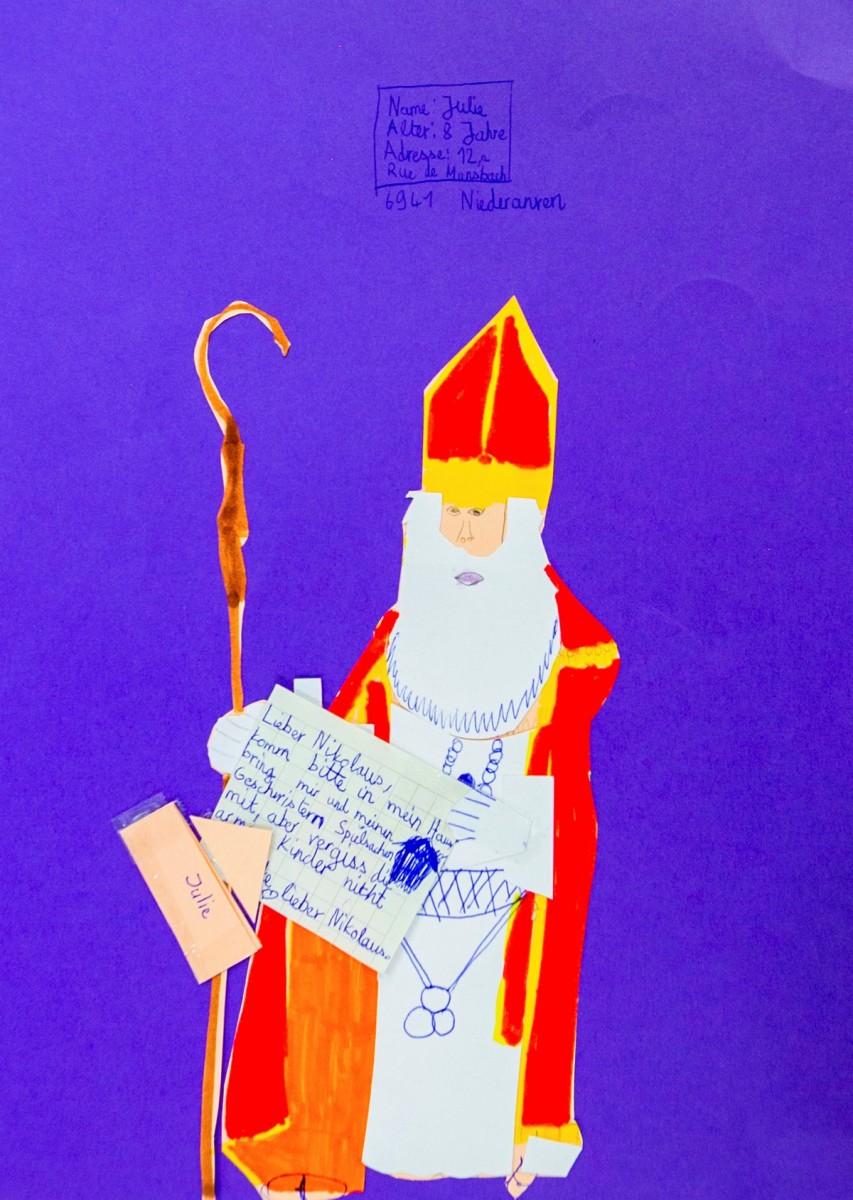 Name: Julie
Alter: 8 Jahre
Adresse: 12,a
Rue de Munsbach
6941 Niederanven
Lieber Nikolaus,
komm bitte in mein Haus
bring mir und meinen
Geschwistern Spielsachen
mit, aber vergiss die
arm Kinder nicht
lieber Nikolaus.
Julie